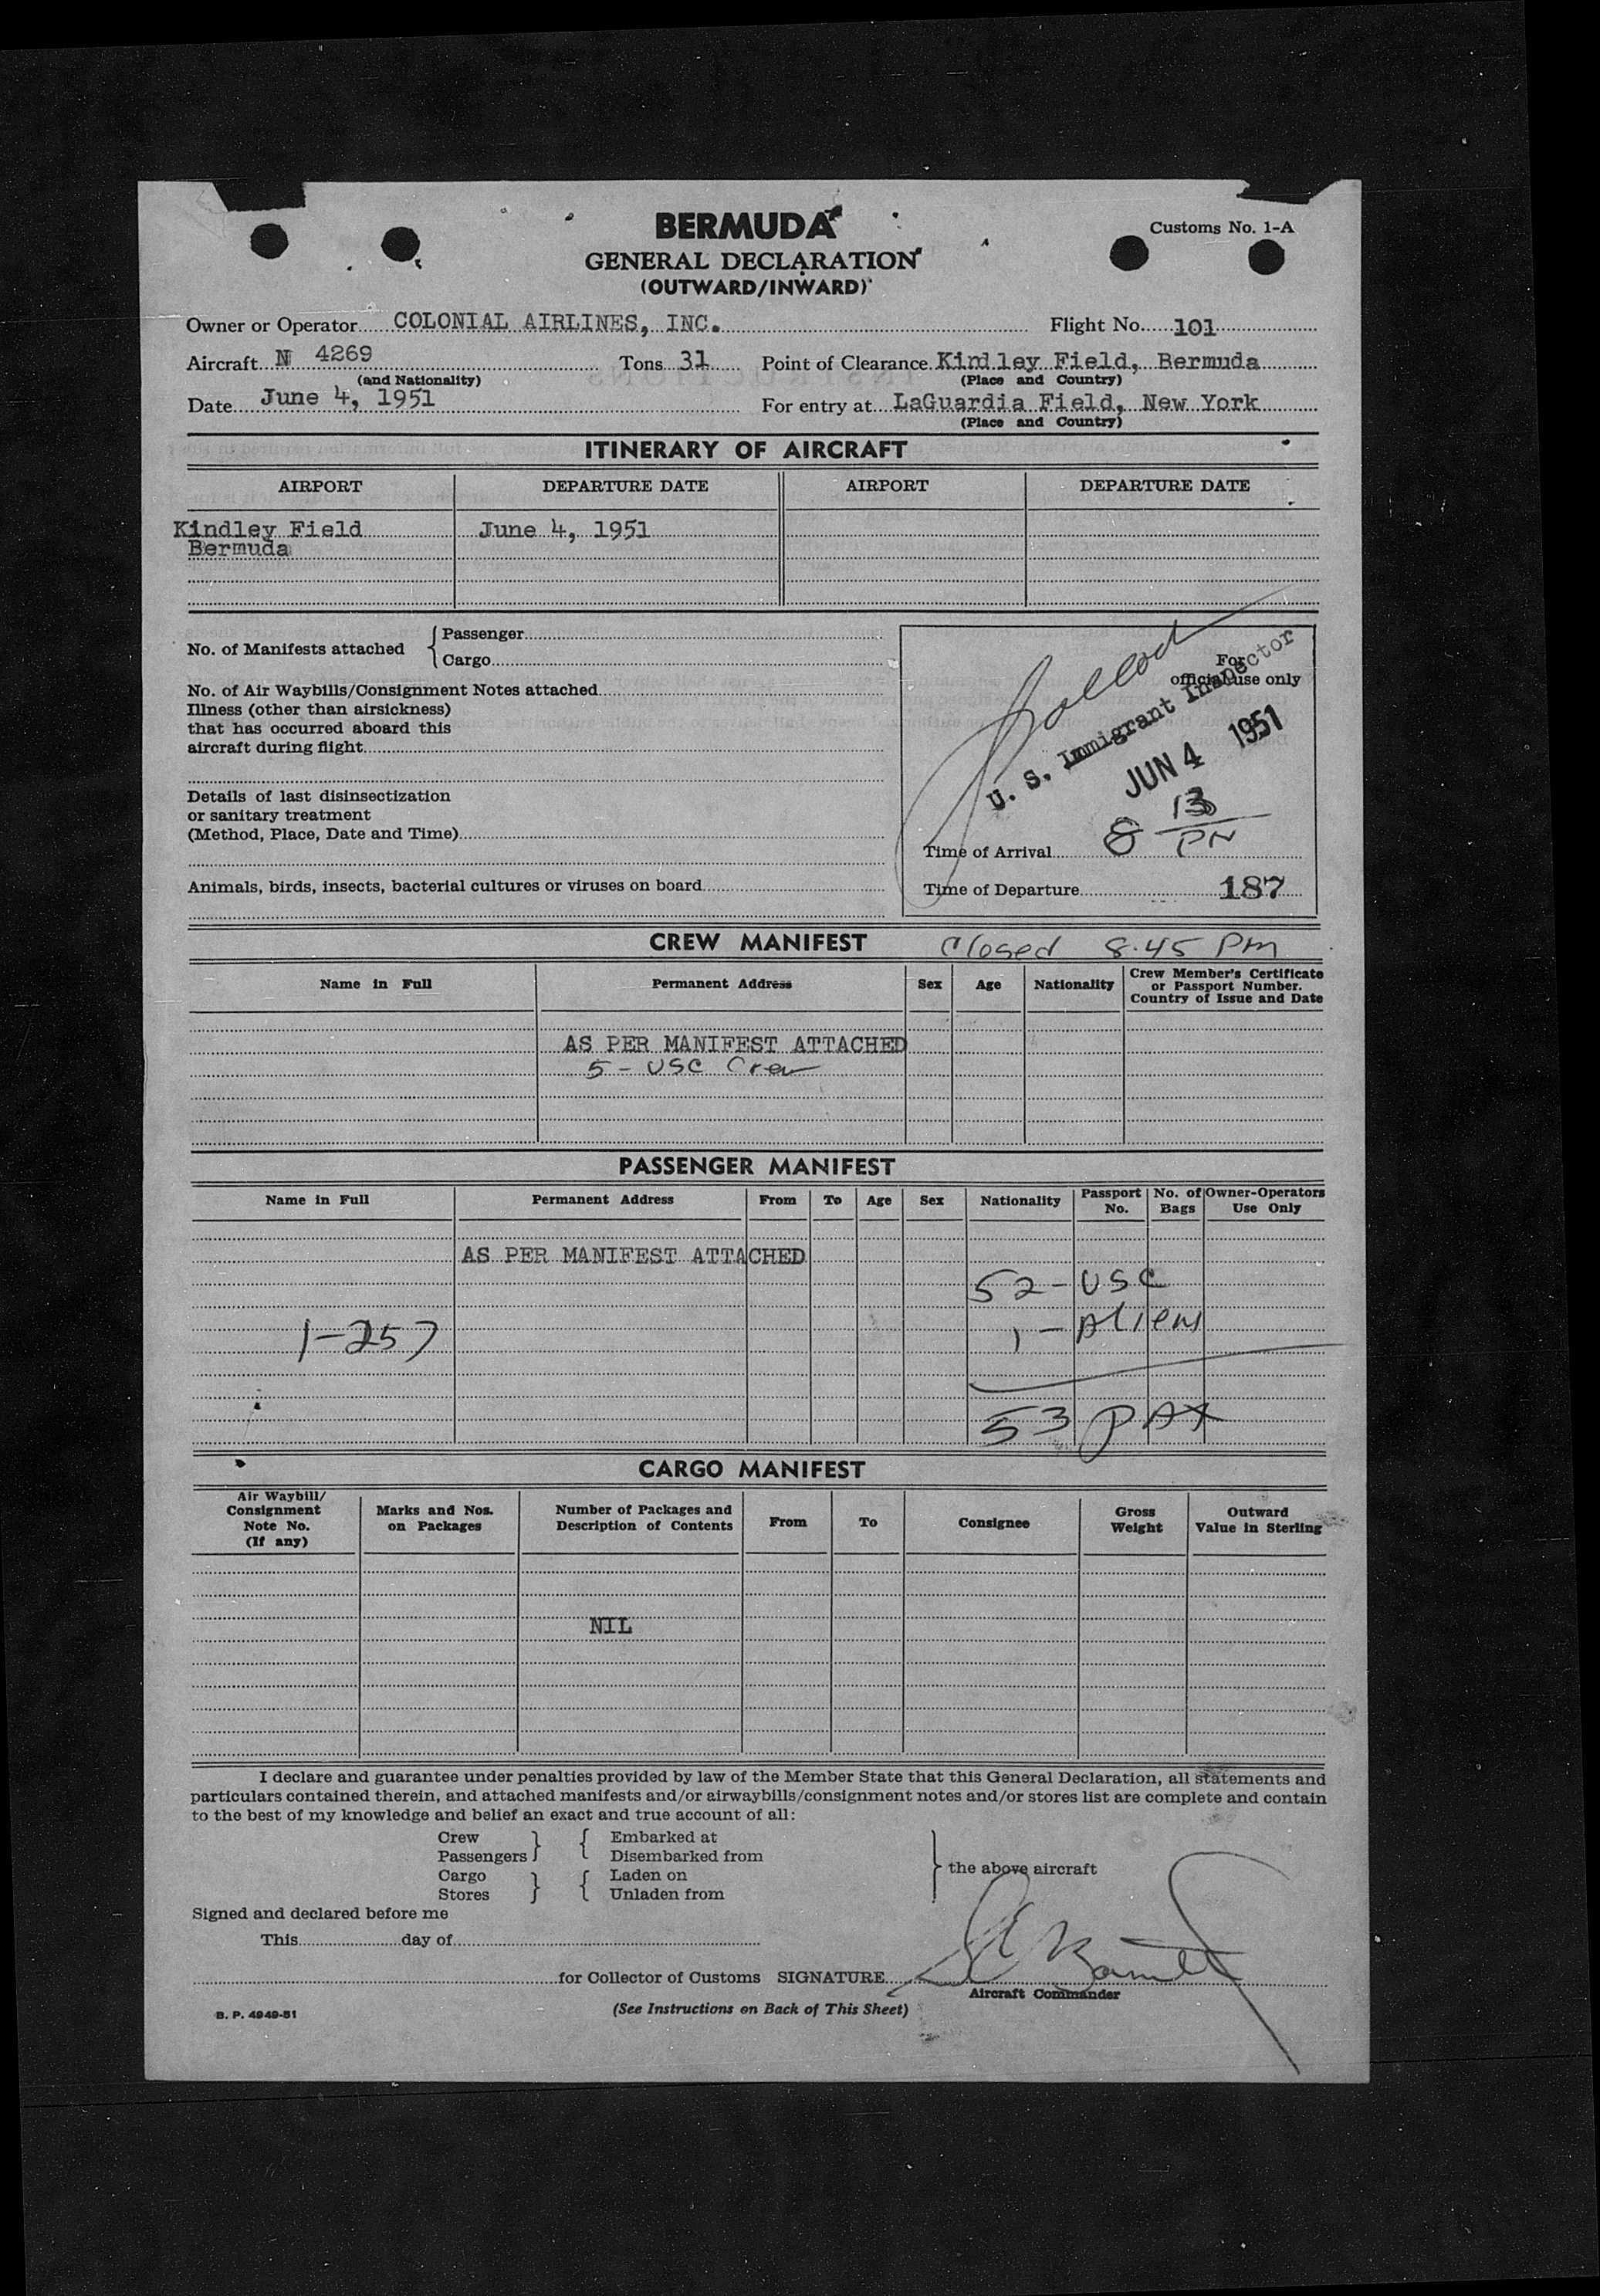 BERMUDA
Customs No. 1-A
GENERAL DECLARATION
(OUTWARD/INWARD)
Owner or Operator COLONIAL AIRLINES, INC. Flight No. 101
Aircraft N 4269 Tons 31 Point of Clearance Kindley Field, Bermuda
(and Nationality) (Place and Country)
Date June 4, 1951 For entry at LaGuardia Field, New York
(Place and Country)
ITINERARY OF AIRCRAFT
AIRPORT DEPARTURE DATE AIRPORT DEPARTURE DATE
Kindley Field June 4, 1951
Bermuda
No. of Manifests attached { Passenger
Cargo
No. of Air Waybills/Consignment Notes attached
Illness (other than airsickness)
that has occurred aboard this
aircraft during flight
Details of last disinsectization
or sanitary treatment
(Method, Place, Date and Time)
Animals, birds, insects, bacterial cultures or viruses on board
For
official use only
U. S. Immigrant Inspector
JUN 4 1951
Time of Arrival 8 13 PM
Time of Departure 187
CREW MANIFEST Closed 8:45 PM
Name in Full Permanent Address Sex Age Nationality Crew Member's Certificate
or Passport Number.
Country of Issue and Date
AS PER MANIFEST ATTACHED
5 - USC Crew
PASSENGER MANIFEST
Name in Full Permanent Address From To Age Sex Nationality Passport No. No. of Bags Owner-Operators Use Only
AS PER MANIFEST ATTACHED
52 - USC
1 - Aliens
1-257
53 PAX
CARGO MANIFEST
Air Waybill/
Consignment
Note No.
(If any)
Marks and Nos.
on Packages
Number of Packages and
Description of Contents
From To Consignee
Gross
Weight
Outward
Value in Sterling
NIL
I declare and guarantee under penalties provided by law of the Member State that this General Declaration, all statements and
particulars contained therein, and attached manifests and/or airwaybills/consignment notes and/or stores list are complete and contain
to the best of my knowledge and belief an exact and true account of all:
Crew } { Embarked at
Passengers Disembarked from
Cargo } { Laden on
Stores Unladen from
} the above aircraft
Signed and declared before me
This day of
for Collector of Customs SIGNATURE
Aircraft Commander
B. P. 4949-51
(See Instructions on Back of This Sheet)